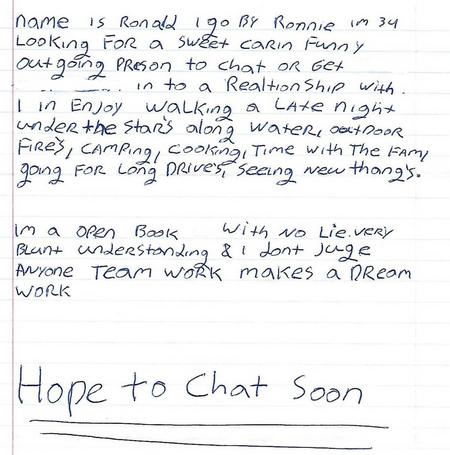 name is Ronald I go By Ronnie im 34
Looking For a sweet carin Funny
outgoing PReson to chat or Get
in to a Realtionship with.
I in Enjoy walking a Late night
under the star's along water, outdoor
Fire's, camping, cooking, Time with The Fam,
going For Long Drive's, seeing new thang's.
im a open Book with no Lie.very
Blunt understanding & i dont juge
Anyone Team work makes a DReam
work
Hope to Chat Soon